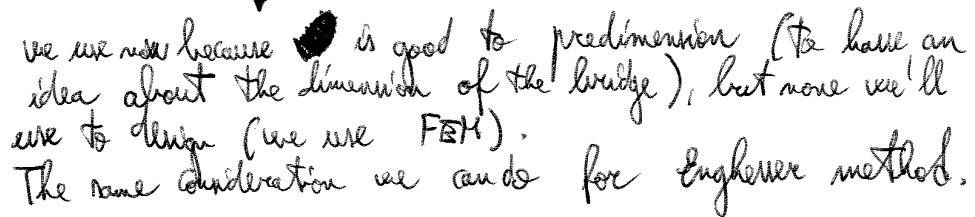 we use now because is good to predimension (to have an
idea about the dimension of the bridge), but none we'll
use to design (we use FEM).
The same consideration we can do for Enghesser method.